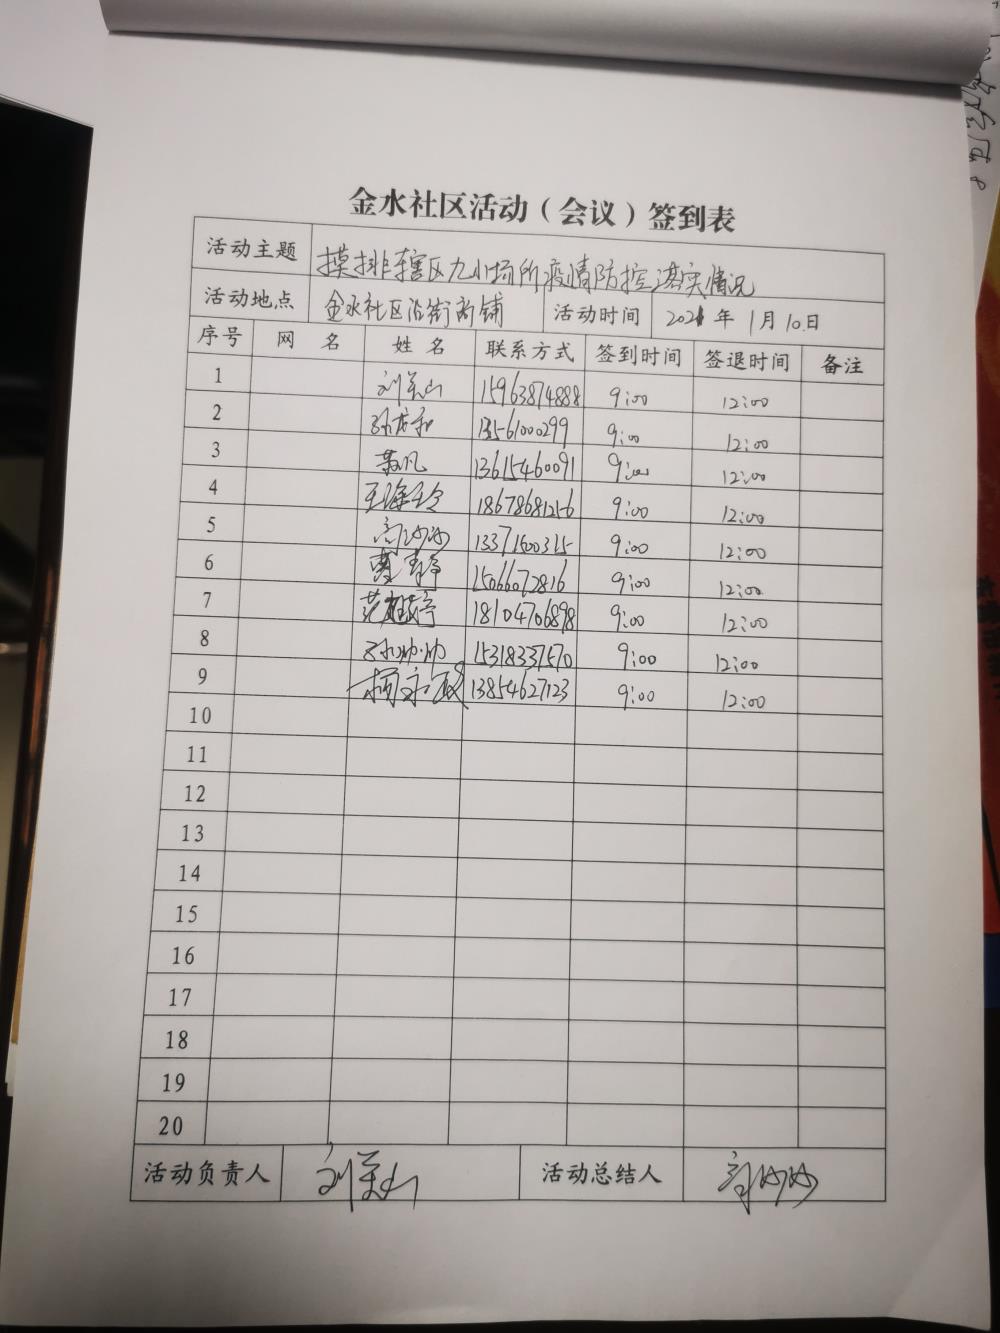 金水社区活动（会议）签到表
活动主题 摸排辖区九小场所疫情防控落实情况
活动地点 金水社区沿街商铺 活动时间 2021年1月10日
序号 网名 姓名 联系方式 签到时间 签退时间 备注
1 刘美山 15963874888 9:00 12:00
2 13561000299 9:00 12:00
3 13615460091 9:00 12:00
4 王海玲 18678681216 9:00 12:00
5 高沙沙 13371500315 9:00 12:00
6 15066072816 9:00 12:00
7 18104706898 9:00 12:00
8 孙帅帅 15318337570 9:00 12:00
9 13854627123 9:00 12:00
10
11
12
13
14
15
16
17
18
19
20
活动负责人 刘美山 活动总结人 高沙沙